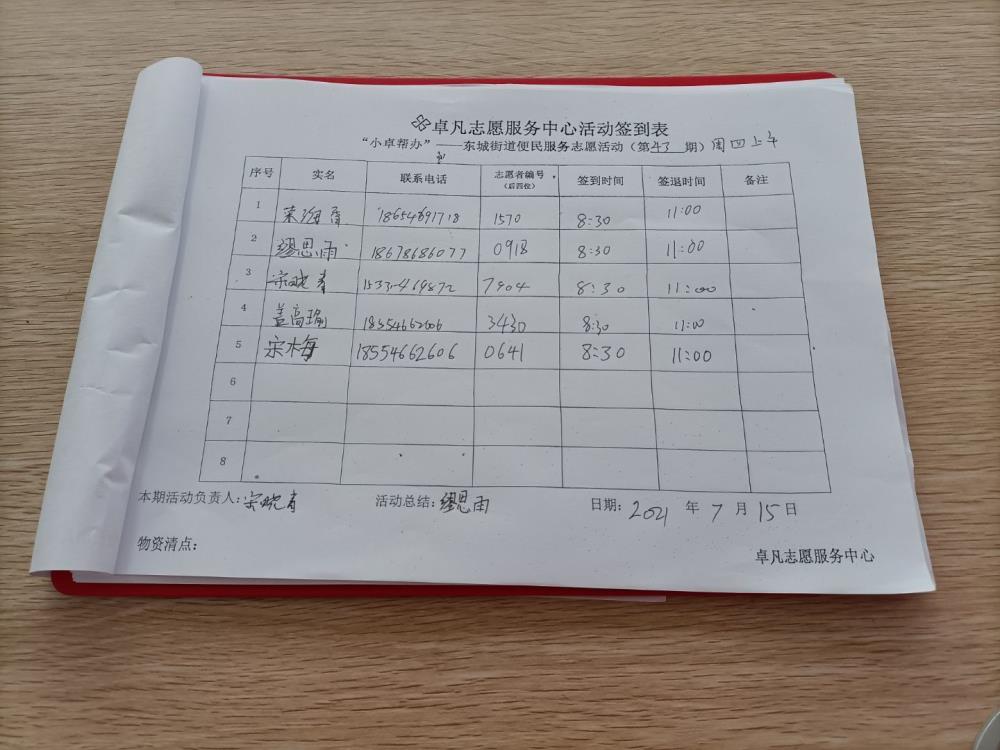 卓凡志愿服务中心活动签到表
“小卓帮办”——东城街道便民服务志愿活动（第43期）周四上午
序号 实名 联系电话 志愿者编号（后四位） 签到时间 签退时间 备注
1 18654691718 1570 8:30 11:00
2 缪思雨 18678686077 0918 8:30 11:00
3 宋晓青 7904 8:30 11:00
4 盖高瑜 3430 8:30 11:00
5 宋梅 18554662606 0641 8:30 11:00
6
7
8
本期活动负责人：宋晓青 活动总结：缪思雨 日期：2021年7月15日
物资清点：
卓凡志愿服务中心